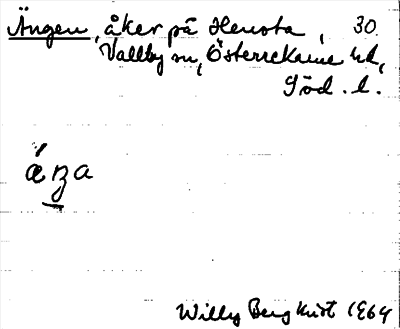 Ängen, åker på Hensta, 30.
Vallby sn, Österrekarne hd,
Söd. l.
ǽŋa
Willy Bergkvist 1964